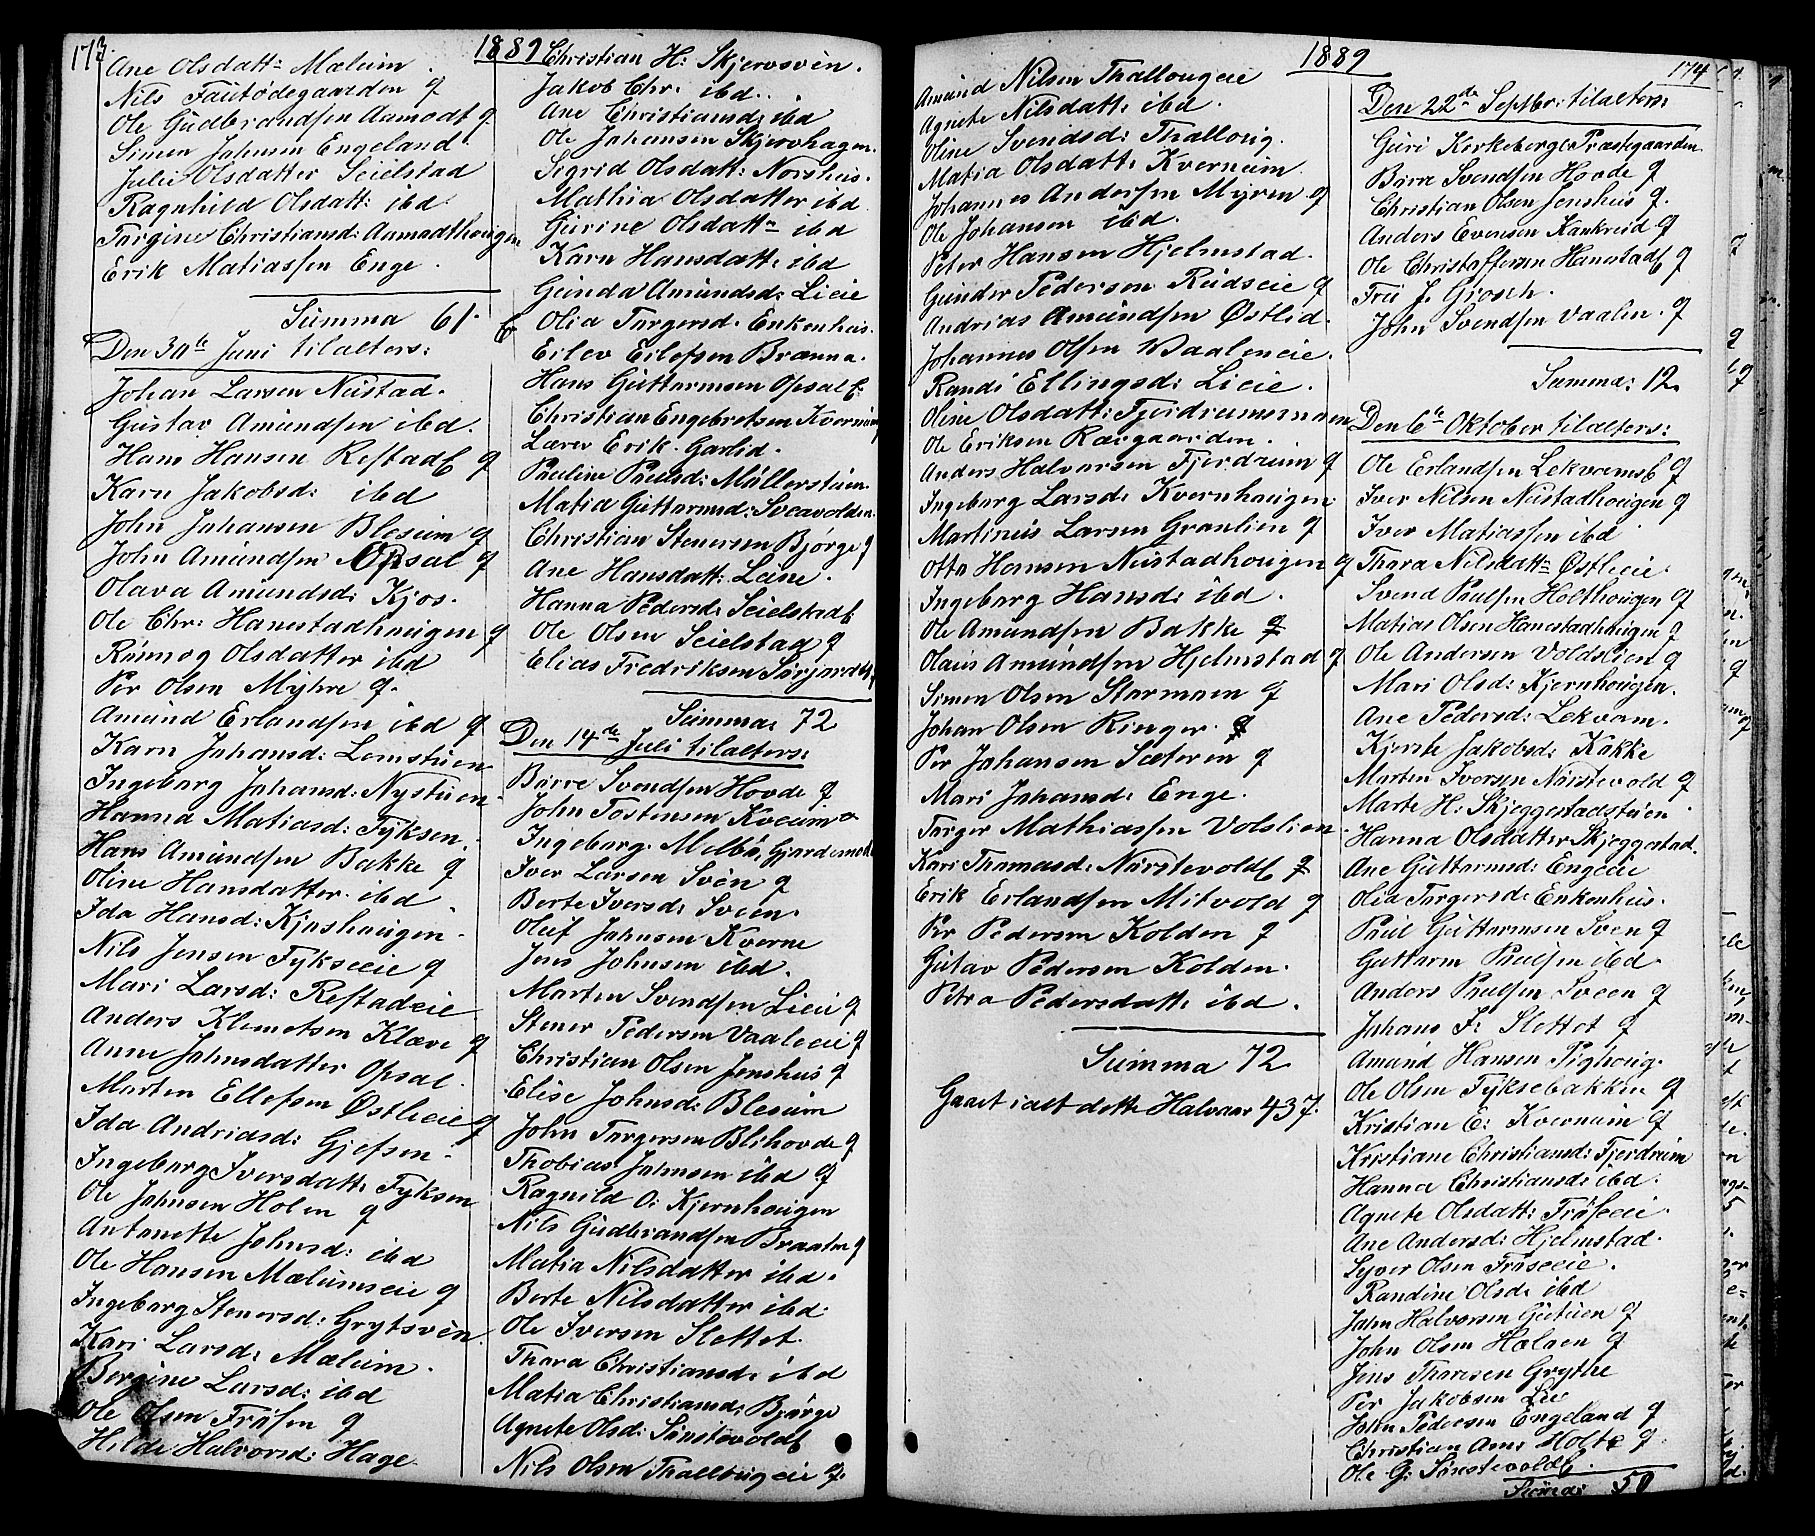 173.
1889
Ane Olsdatt: Mælum.
Nils Fautødegaarden g
Ole Gudbrandsen Aamodt g
Simen Johnsen Engeland.
Julie Olsdatter Seielstad
Ragnhild Olsdatt: ibd
Torgine Christiansd: Aamodthougen
Erik Matiassen Enge.
Summa 61.
Den 30te Juni tilalters:
Johan Larsen Nustad.
Gustav Amundsen ibd.
Hans Hansen Refstad g
Karn Jakobsd: ibd
John Johansen Blesum g
John Amundsen Opsal g
Olava Amundsd: Kjos.
Ole Chr: Hanestadhougen g
Rønnog Olsdatter ibd
Per Olsen Myhre g.
Amund Erlandsen ibd g
Karn Johansd: Lomstuen
Ingeborg Johansd: Nystuen.
Hanna Matiasd: Fyksen.
Hans Amundsen Bakke g
Oline Hansdatter ibd
Ida Hansd: Kjoshougen.
Nils Jensen Fykseeie g
Mari Larsd: Refstadeie
Anders Klemetsen Klæve g
Anne Johnsdatter Opsal.
Marten Ellefsen Østlieeie g
Ida Andriasd: Gjefsen.
Ingeborg Iversdatt: Fyksen
Ole Johnsen Holen g
Antonette Johnsd: ibd
Ole Hansen Mælumseie g
Ingeborg Stenersd: Grytsvén.
Kari Larsd: Mælum.
Bergine Larsd: ibd
Ole Olsen Frøsen g
Hilde Halvorsd: Hage
Christian H: Skjervsvén.
Jakob Chr. ibd.
Ane Christiansd: ibd
Ole Johansen Skjervhagen.
Sigrid Olsdatt: Norshus.
Mathia Olsdatter ibd
Gurine Olsdatt: ibd
Karn Hansdatt: ibd
Gunda Amundsd: Lieie
Olia Torgersd. Enkenhus.
Eilev Eilefsen Brænna.
Hans Guttormsen Opsal
Christian Engebretsen Kvernum
Lærer Erik Garlid.
Pauline Paulsd: Møllerstuen.
Matia Guttormsd: Sveavolden.
Christian Stenersen Bjørge g
Ane Hansdatt: Leine.
Hanna Pedersd: Seielstad
Ole Olsen Seielstad g
Elias Fredriksen
Summa: 72
Den 14de Juli tilalters:
Børre Svendsen Hovde g
John Tostensen Kveum
Ingeborg Melbø, Gjardemoen
Iver Larsen Svén g
Berte Iversd: Sveen.
Oluf Johnsen Kverne
Jens Johnsen ibd.
Marten Svendsen Lieie g
Stener Pedersen Vaaleeie g
Christian Olsen Jenshus g
Elise Johnsd: Blesum
John Torgersen Blihovde g
Thobias Johnsen ibd g
Ragnild O: Kjernhougen
Nils Gudbrandsen Braaten g
Matia Nilsdatter ibd.
Berte Nilsdatter ibd
Ole Iversen Slettet.
Thora Christiansd: ibd
Matia Christiansd: Bjørge
Agnete Olsd: Sønstevold
Nils Olsen Thallougeie g.
1889
174
Amund Nilsen Thallougeie
Agnete Nilsdatt: ibd.
Oline Svendsd: Thalloug.
Matia Olsdatt: Kvernum
Johannes Andersen Myren g
Ole Johansen ibd.
Peter Hansen Hjelmstad.
Gunder Pedersen Rudseie g
Andrias Amundsen Østlid.
Johannes Olsen Vaaleneie.
Randi Ellingsd: Lieie.
Oline Olsdatt: Fjerdrumsmoen
Ole Eriksen Rævgaarden.
Anders Halvorsen Fjerdrum g
Ingeborg Larsd: Kvernhougen
Martinus Larsen Granlien g
Otto Hansen Nustadhougen g
Ingeborg Hansd: ibd.
Ole Amundsen Bakke g
Olaus Amundsen Hjelmstad g
Simen Olsen Stormoen g
Johan Olsen Ringer. g
Per Johansen Sæteren g
Mari Johansd: Enge.
Torger Mathiassen Volslien.
Kari Thomasd: Nørstevold g
Erik Erlandsen Mitvold g
Per Pedersen Kolden g
Gustav Pedersen Kolden.
Petra Pedersdatt: ibd.
Summa 72
Gaaet ialt dette Halvaar 437.
Den 22de Septbr: tilalters:
Guri Korkeberg Præstegaarden.
Børre Svendsen Hovde g
Christian Olsen Jenshus g.
Anders Evensen Kankreid g
Ole Christoffersen Hanestad g
Fru J. Grosch.
John Svendsen Vaalen. g
Summa: 12
Den 6te Oktober tilalters:
Ole Erlandsen Lekvams g
Iver Nilsen Nustadhougen g
Iver Matiassen ibd
Thora Nilsdatt: Østlieie.
Svend Paulsen Holthougen g
Matias Olsen Hanestadhougen g
Ole Andersen Voldslien g
Mari Olsd: Kjernhougen.
Ane Pedersd: Lekvam.
Kjersti Jakobsd: Kakke
Marten Iversen Nørstevold g
Marte H: Skjeggestadstuen
Hanna Olsdatter Skjeggestad.
Ane Guttormsd: Engeeie
Olia Torgersd: Enkenhus.
Paul Guttormsen Sven g
Guttorm Paulsen ibd.
Anders Paulsen Sveen g
Johans J: Slettet g
Amund Hansen Pighoug.
Ole Olsen Fyksebakken g
Kristian E: Kvernum g
Kristiane Christiansd: Fjerdrum
Hanna Christiansd: ibd.
Agnete Olsdatt: Frøseeie.
Ane Andersd: Hjelmstad.
Syver Olsen Frøseeie.
Randine Olsd: ibd
John Halvorsen Gutuen g
John Olsen Holoen g
Jens Thoresen Grythe
Per Jakobsen Lie
John Pedersen Engeland g
Christian Am: Holte g
Ole G: Sønstevold.
Summa: 50